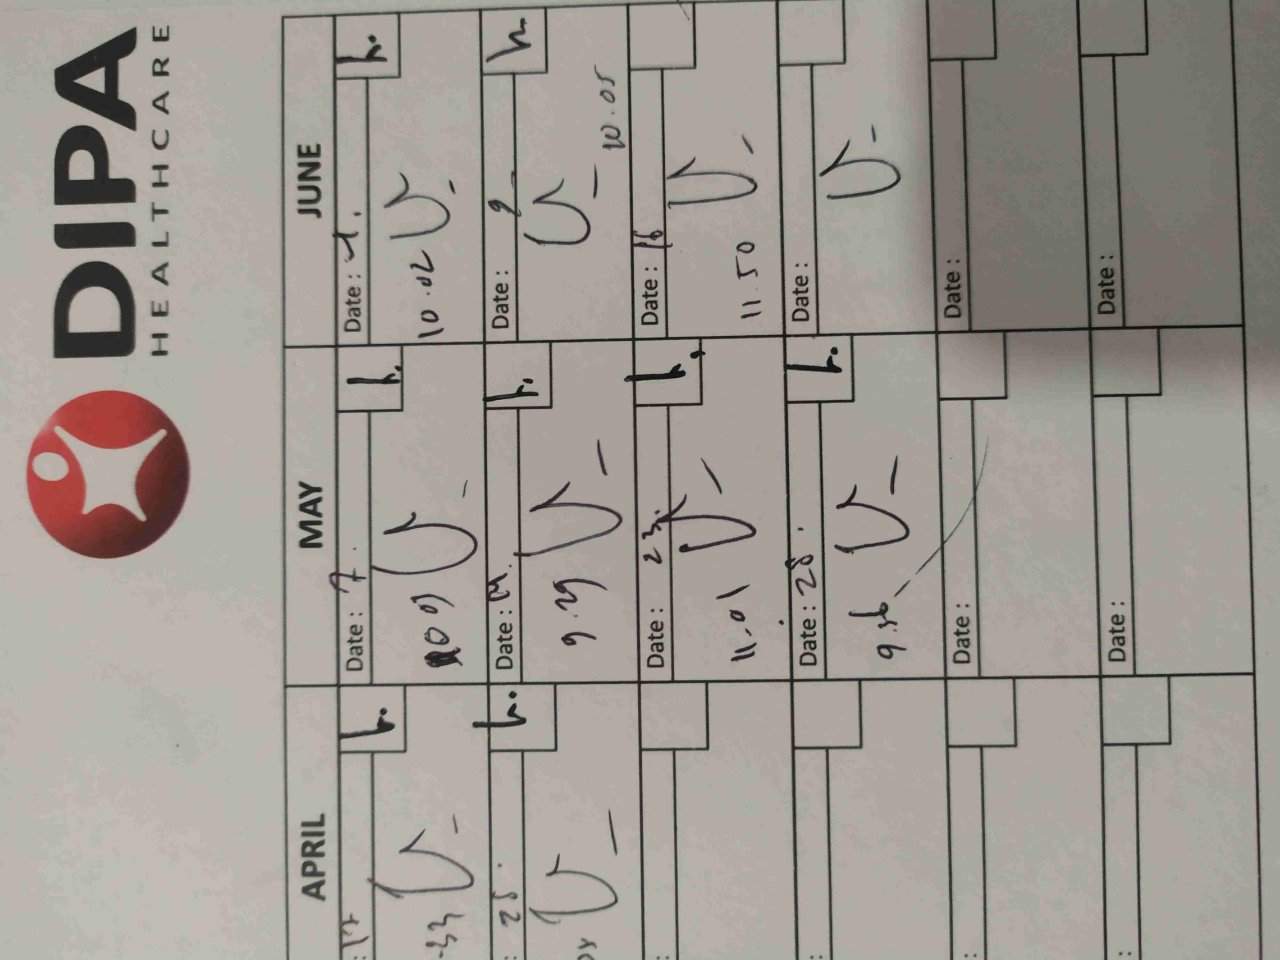 DIPA
HEALTHCARE
APRIL MAY JUNE
: 17 h. Date : 7 h. Date : 1. h.
.33 10.02
: 28. h. Date : 14. h. Date : 9 h.
9.29 10.05
Date : 23. h. Date : 16
11.01 11.50
Date : 28. h. Date :
9.36
Date : Date :
Date : Date :